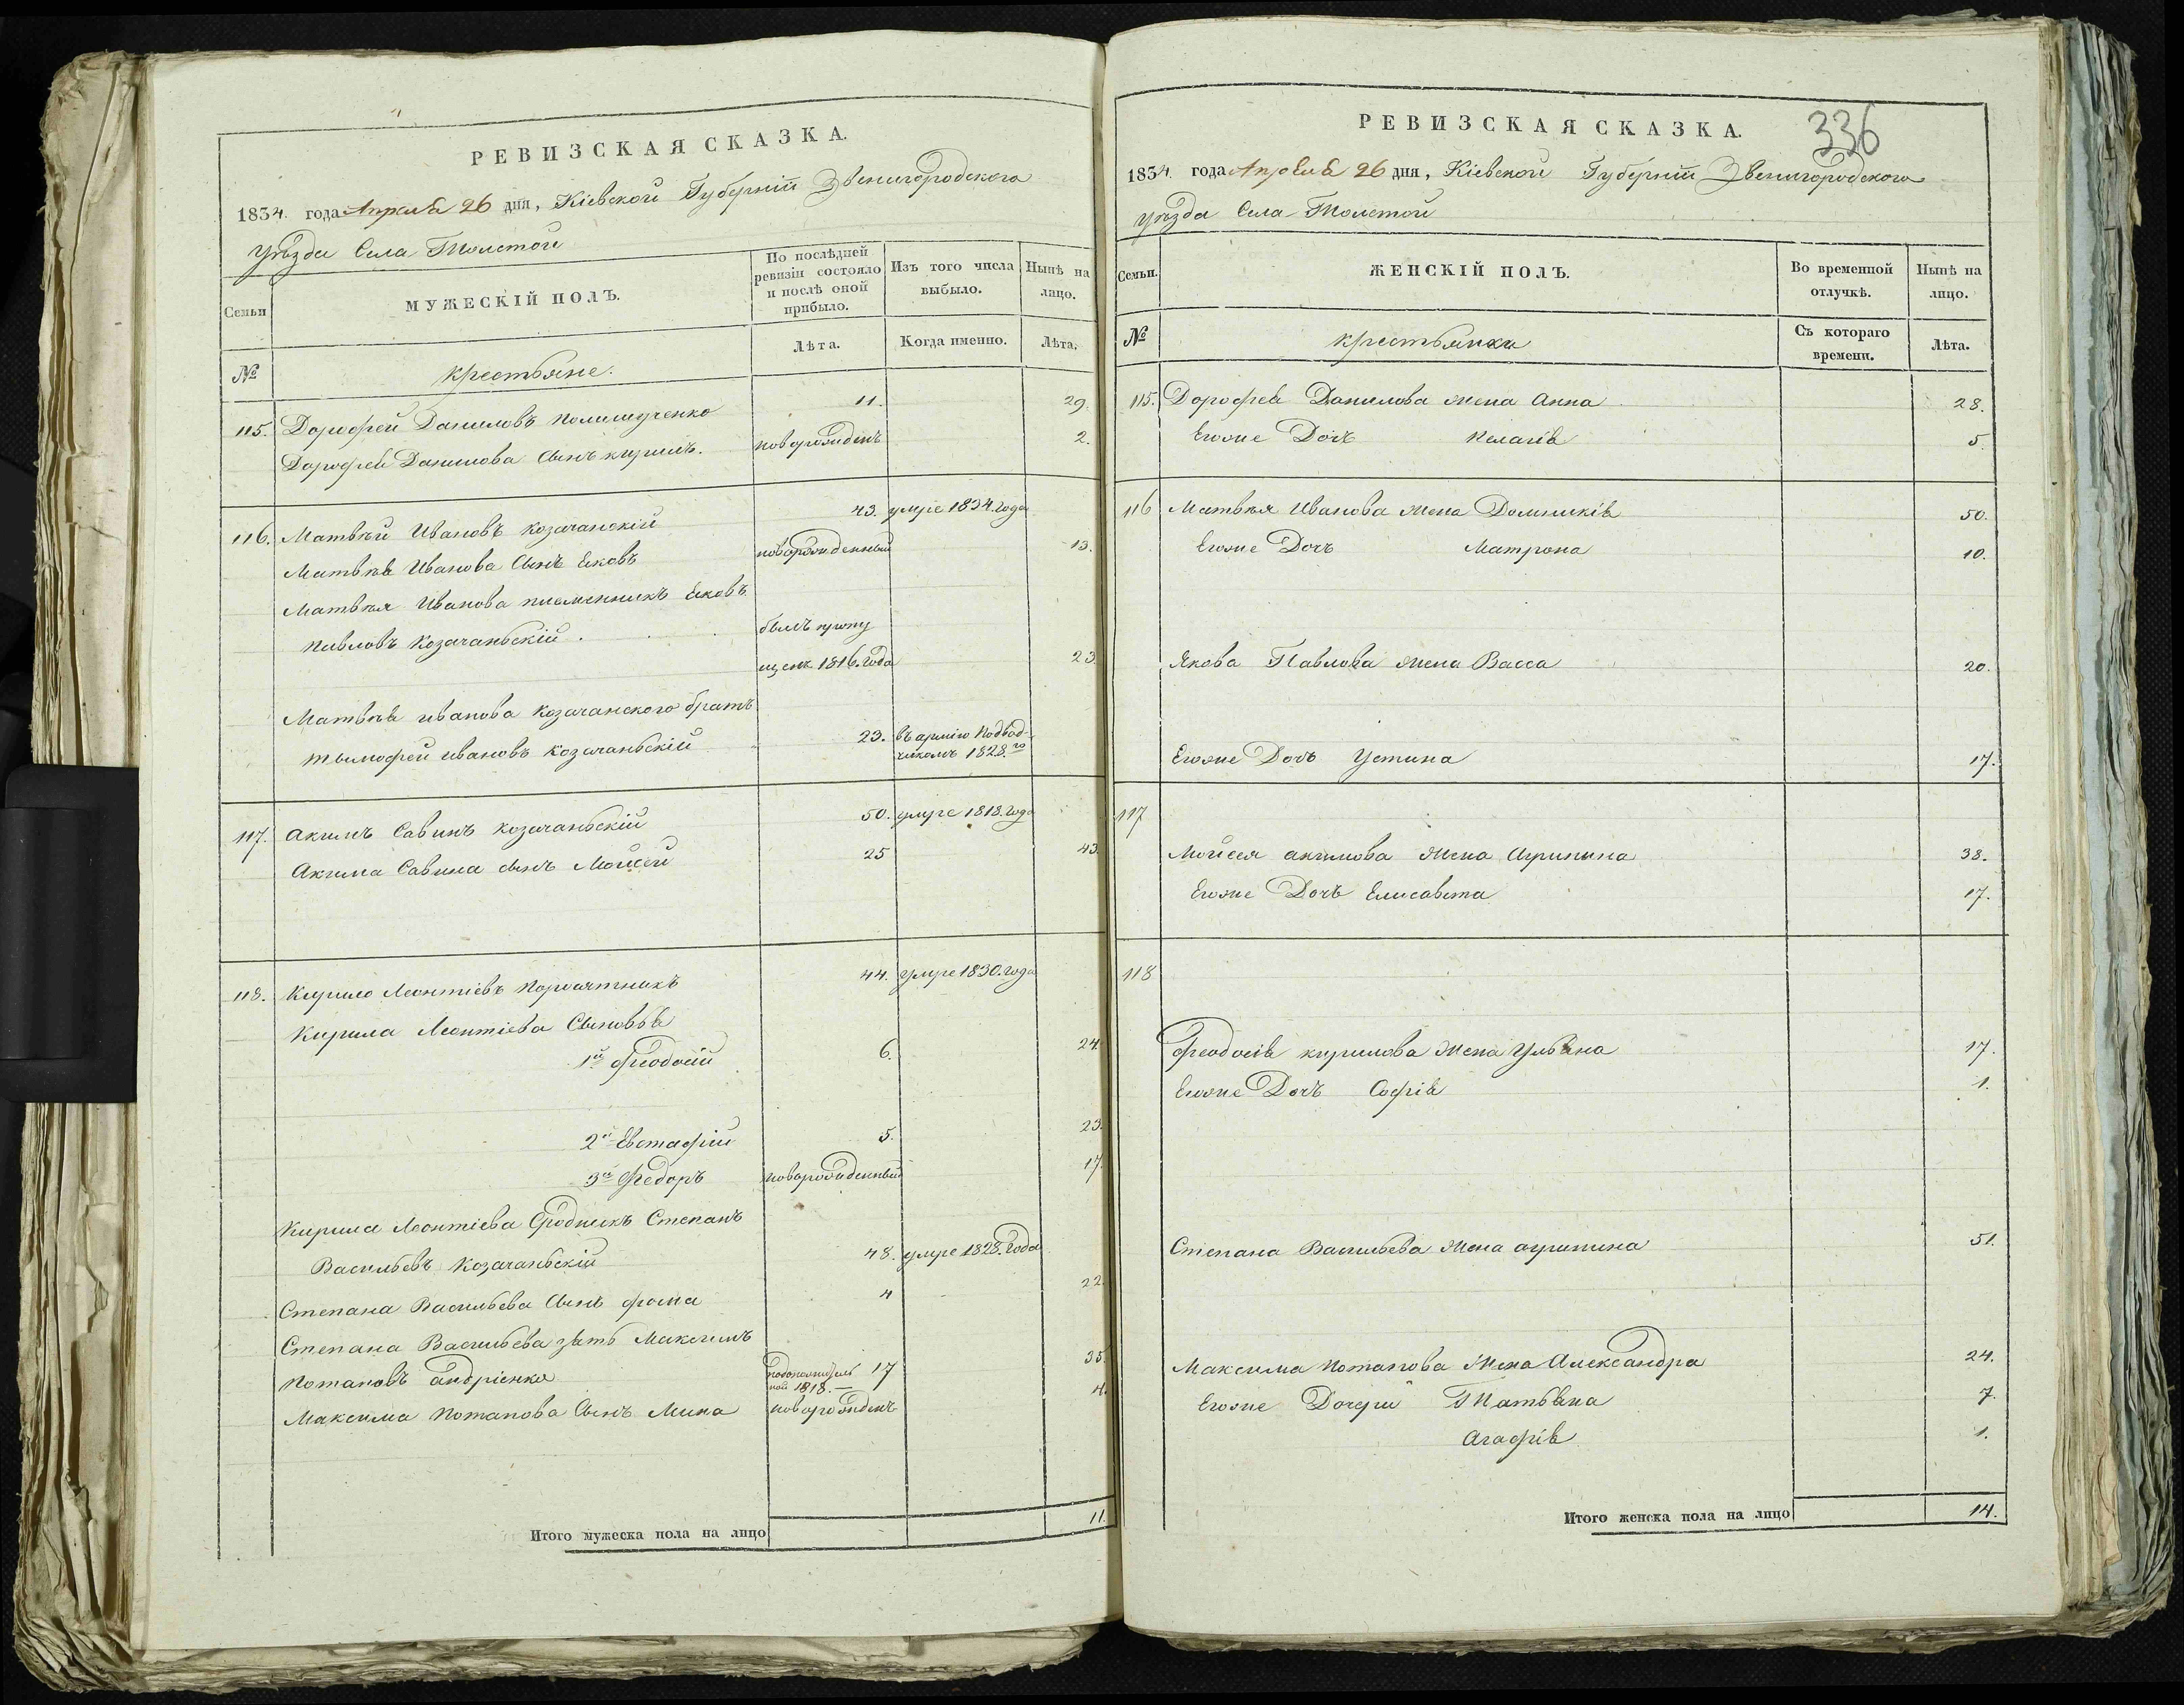 РЕВИЗСКАЯ СКАЗКА.
1834. года Апреля 26 дня, Кіевской Губерніи Звенигородского
уѣзда Села Толстой
Семьи
МУЖЕСКІЙ ПОЛЪ.
По послѣдней ревизіи состояло и послѣ оной прибыло.
Изъ того числа выбыло.
Нынѣ на лицо.
№
крестьяне.
Лѣта.
Когда именно.
Лѣта.
115. Дорофей Даниловъ 11. 29.
Дорофея Данилова Сынъ кирилъ. новорожденъ 2.
116. Матвѣй Ивановъ Козачанскій 43. умре 1834. года
Матвѣя Иванова Сынъ Яковъ новорожденный 13.
Матвѣя Иванова племенникъ Яковъ
Павловъ Козачаньскій. былъ пропу
щенъ 1816. года 23.
Матвѣя иванова Козачанского братъ
тымофей ивановъ Козачаньскій 23. въ армію Подвод-
чикомъ 1828.го
117. Акимъ Савинъ козачаньскій 50. умре 1818. года
Акима Савина сынъ Мойсей 25 43.
118. Кирило Леонтіевъ Поросятникъ 44. умре 1830. года
Кирила Леонтіева Сыновья
1й Феодосій 6. 24.
2й Евстафій 5. 23.
3й Федоръ новорожденный 17.
Кирила Леонтіева Сродникъ Степанъ
Васильевъ Козачаньскій 48. умре 1828. года
Степана Васильева Сынъ фома 4 22.
Степана Васильева зять Максимъ
Потаповъ андріенко 1818. 17 35.
Максима Потапова Сынъ Мина новорожденъ 4.
Итого мужеска пола на лицо 11.
336
РЕВИЗСКАЯ СКАЗКА.
1834. года Апреля 26 дня, Кіевской Губерніи Звенигородского
уѣзда Села Толстой
Семьи.
ЖЕНСКІЙ ПОЛЪ.
Во временной отлучкѣ.
Нынѣ на лицо.
№
крестьянки
Съ котораго времени.
Лѣта.
115. Дорофея Данилова жена Анна 28.
Егоже Дочь Пелагія 5.
116 Матвѣя Иванова жена Домникія 50.
Егоже Дочь Матрона 10.
Якова Павлова жена Васса 20.
Егоже Дочь Устина 17.
117
Мойсея акимова жена Агрипина 38.
Егоже Дочь Елисавета 17.
118
Феодосія кирилова жена Ульяна 17.
Егоже Дочь Софія 1.
Степана Васильева жена агрипина 51.
Максима Потапова жена Александра 24.
Егоже Дочери Татьяна 7.
Агафія 1.
Итого женска пола на лицо 14.